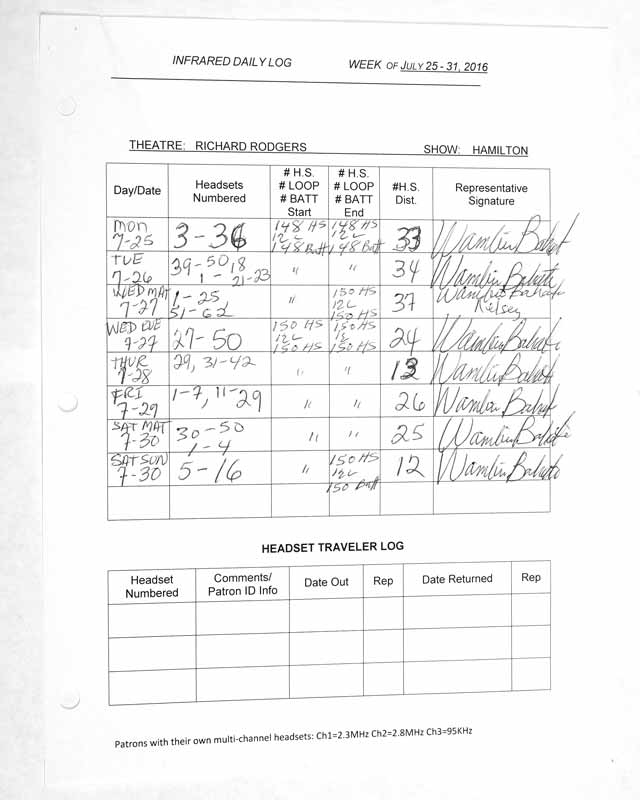 INFRARED DAILY LOG WEEK OF JULY 25 - 31, 2016
THEATRE: RICHARD RODGERS SHOW: HAMILTON
Day/Date
Headsets
Numbered
# H.S.
# LOOP
# BATT
Start
# H.S.
# LOOP
# BATT
End
#H.S.
Dist.
Representative
Signature
MON
7-25
3-36
148 HS
12 L
148 Batt
148 HS
12 L
148 Batt
33
TUE
7-26
39-50, 18
1 - 21-23
"
"
34
WED MAT
7-27
1-25
51-62
"
150 HS
12L
150 HS
37
Kelsey
WED EVE
7-27
27-50
150 HS
12L
150 HS
150 HS
150 HS
24
THUR
7-28
29, 31-42
"
"
13
FRI
7-29
1-7, 11-29
"
"
26
SAT MAT
7-30
30-50
1-4
"
"
25
SAT SUN
7-30
5-16
"
150 HS
12L
150 Batt
12
HEADSET TRAVELER LOG
Headset
Numbered
Comments/
Patron ID Info
Date Out
Rep
Date Returned
Rep
Patrons with their own multi-channel headsets: Ch1=2.3MHz Ch2=2.8MHz Ch3=95KHz